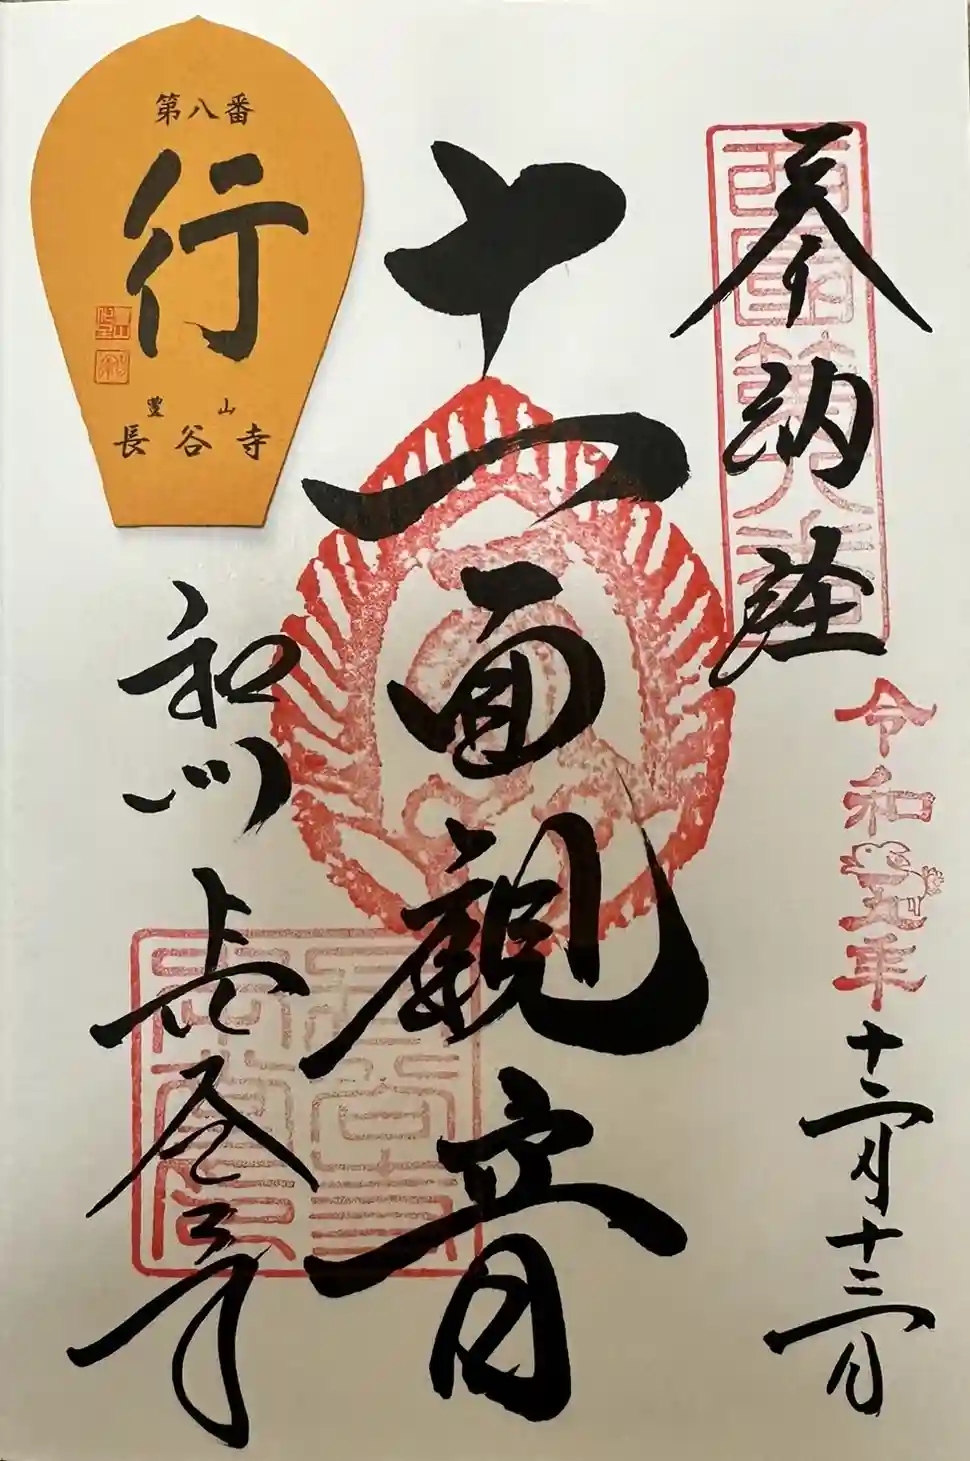 奉納経
西國第八番
令和五年
十二月十三日
十一面観音
和州
長谷寺
第八番
行
豊山
長谷寺